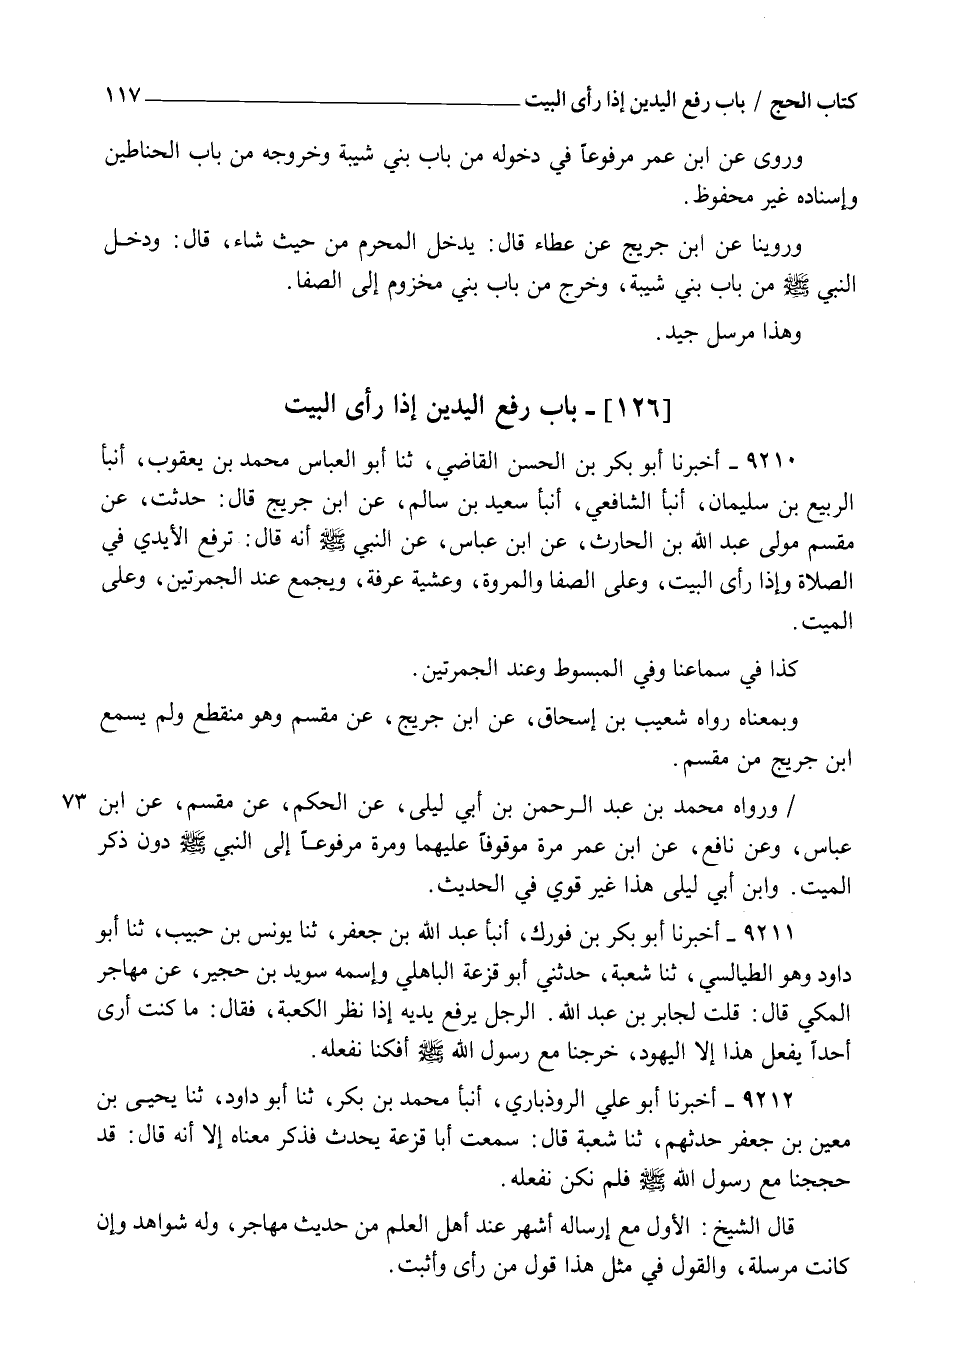 كتاب الحج / باب رفع اليدين إذا رأى البيت ١١٧
وروى عن ابن عمر مرفوعاً في دخوله من باب بني شيبة وخروجه من باب الحناطين
وإسناده غير محفوظ.
وروينا عن ابن جريج عن عطاء قال: يدخل المحرم من حيث شاء، قال: ودخل
النبي ﷺ من باب بني شيبة، وخرج من باب بني مخزوم إلى الصفا.
وهذا مرسل جيد.
[١٢٦] ـ باب رفع اليدين إذا رأى البيت
٩٢١٠ ـ أخبرنا أبو بكر بن الحسن القاضي، ثنا أبو العباس محمد بن يعقوب، أنبأ
الربيع بن سليمان، أنبأ الشافعي، أنبأ سعيد بن سالم، عن ابن جريج قال: حدثت، عن
مقسم مولى عبد الله بن الحارث، عن ابن عباس، عن النبي ﷺ أنه قال: ترفع الأيدي في
الصلاة وإذا رأى البيت، وعلى الصفا والمروة، وعشية عرفة، ويجمع عند الجمرتين، وعلى
الميت.
كذا في سماعنا وفي المبسوط وعند الجمرتين.
وبمعناه رواه شعيب بن إسحاق، عن ابن جريج، عن مقسم وهو منقطع ولم يسمع
ابن جريج من مقسم.
/ ورواه محمد بن عبد الرحمن بن أبي ليلى، عن الحكم، عن مقسم، عن ابن ٧٣
عباس، وعن نافع، عن ابن عمر مرة موقوفاً عليهما ومرة مرفوعاً إلى النبي ﷺ دون ذكر
الميت. وابن أبي ليلى هذا غير قوي في الحديث.
٩٢١١ ـ أخبرنا أبو بكر بن فورك، أنبأ عبد الله بن جعفر، ثنا يونس بن حبيب، ثنا أبو
داود وهو الطيالسي، ثنا شعبة، حدثني أبو قزعة الباهلي وإسمه سويد بن حجير، عن مهاجر
المكي قال: قلت لجابر بن عبد الله. الرجل يرفع يديه إذا نظر الكعبة، فقال: ما كنت أرى
أحداً يفعل هذا إلا اليهود، خرجنا مع رسول الله ﷺ أفكنا نفعله.
٩٢١٢ ـ أخبرنا أبو علي الروذباري، أنبأ محمد بن بكر، ثنا أبو داود، ثنا يحيى بن
معين بن جعفر حدثهم، ثنا شعبة قال: سمعت أبا قزعة يحدث فذكر معناه إلا أنه قال: قد
حججنا مع رسول الله ﷺ فلم نكن نفعله.
قال الشيخ: الأول مع إرساله أشهر عند أهل العلم من حديث مهاجر، وله شواهد وإن
كانت مرسلة، والقول في مثل هذا قول من رأى وأثبت.